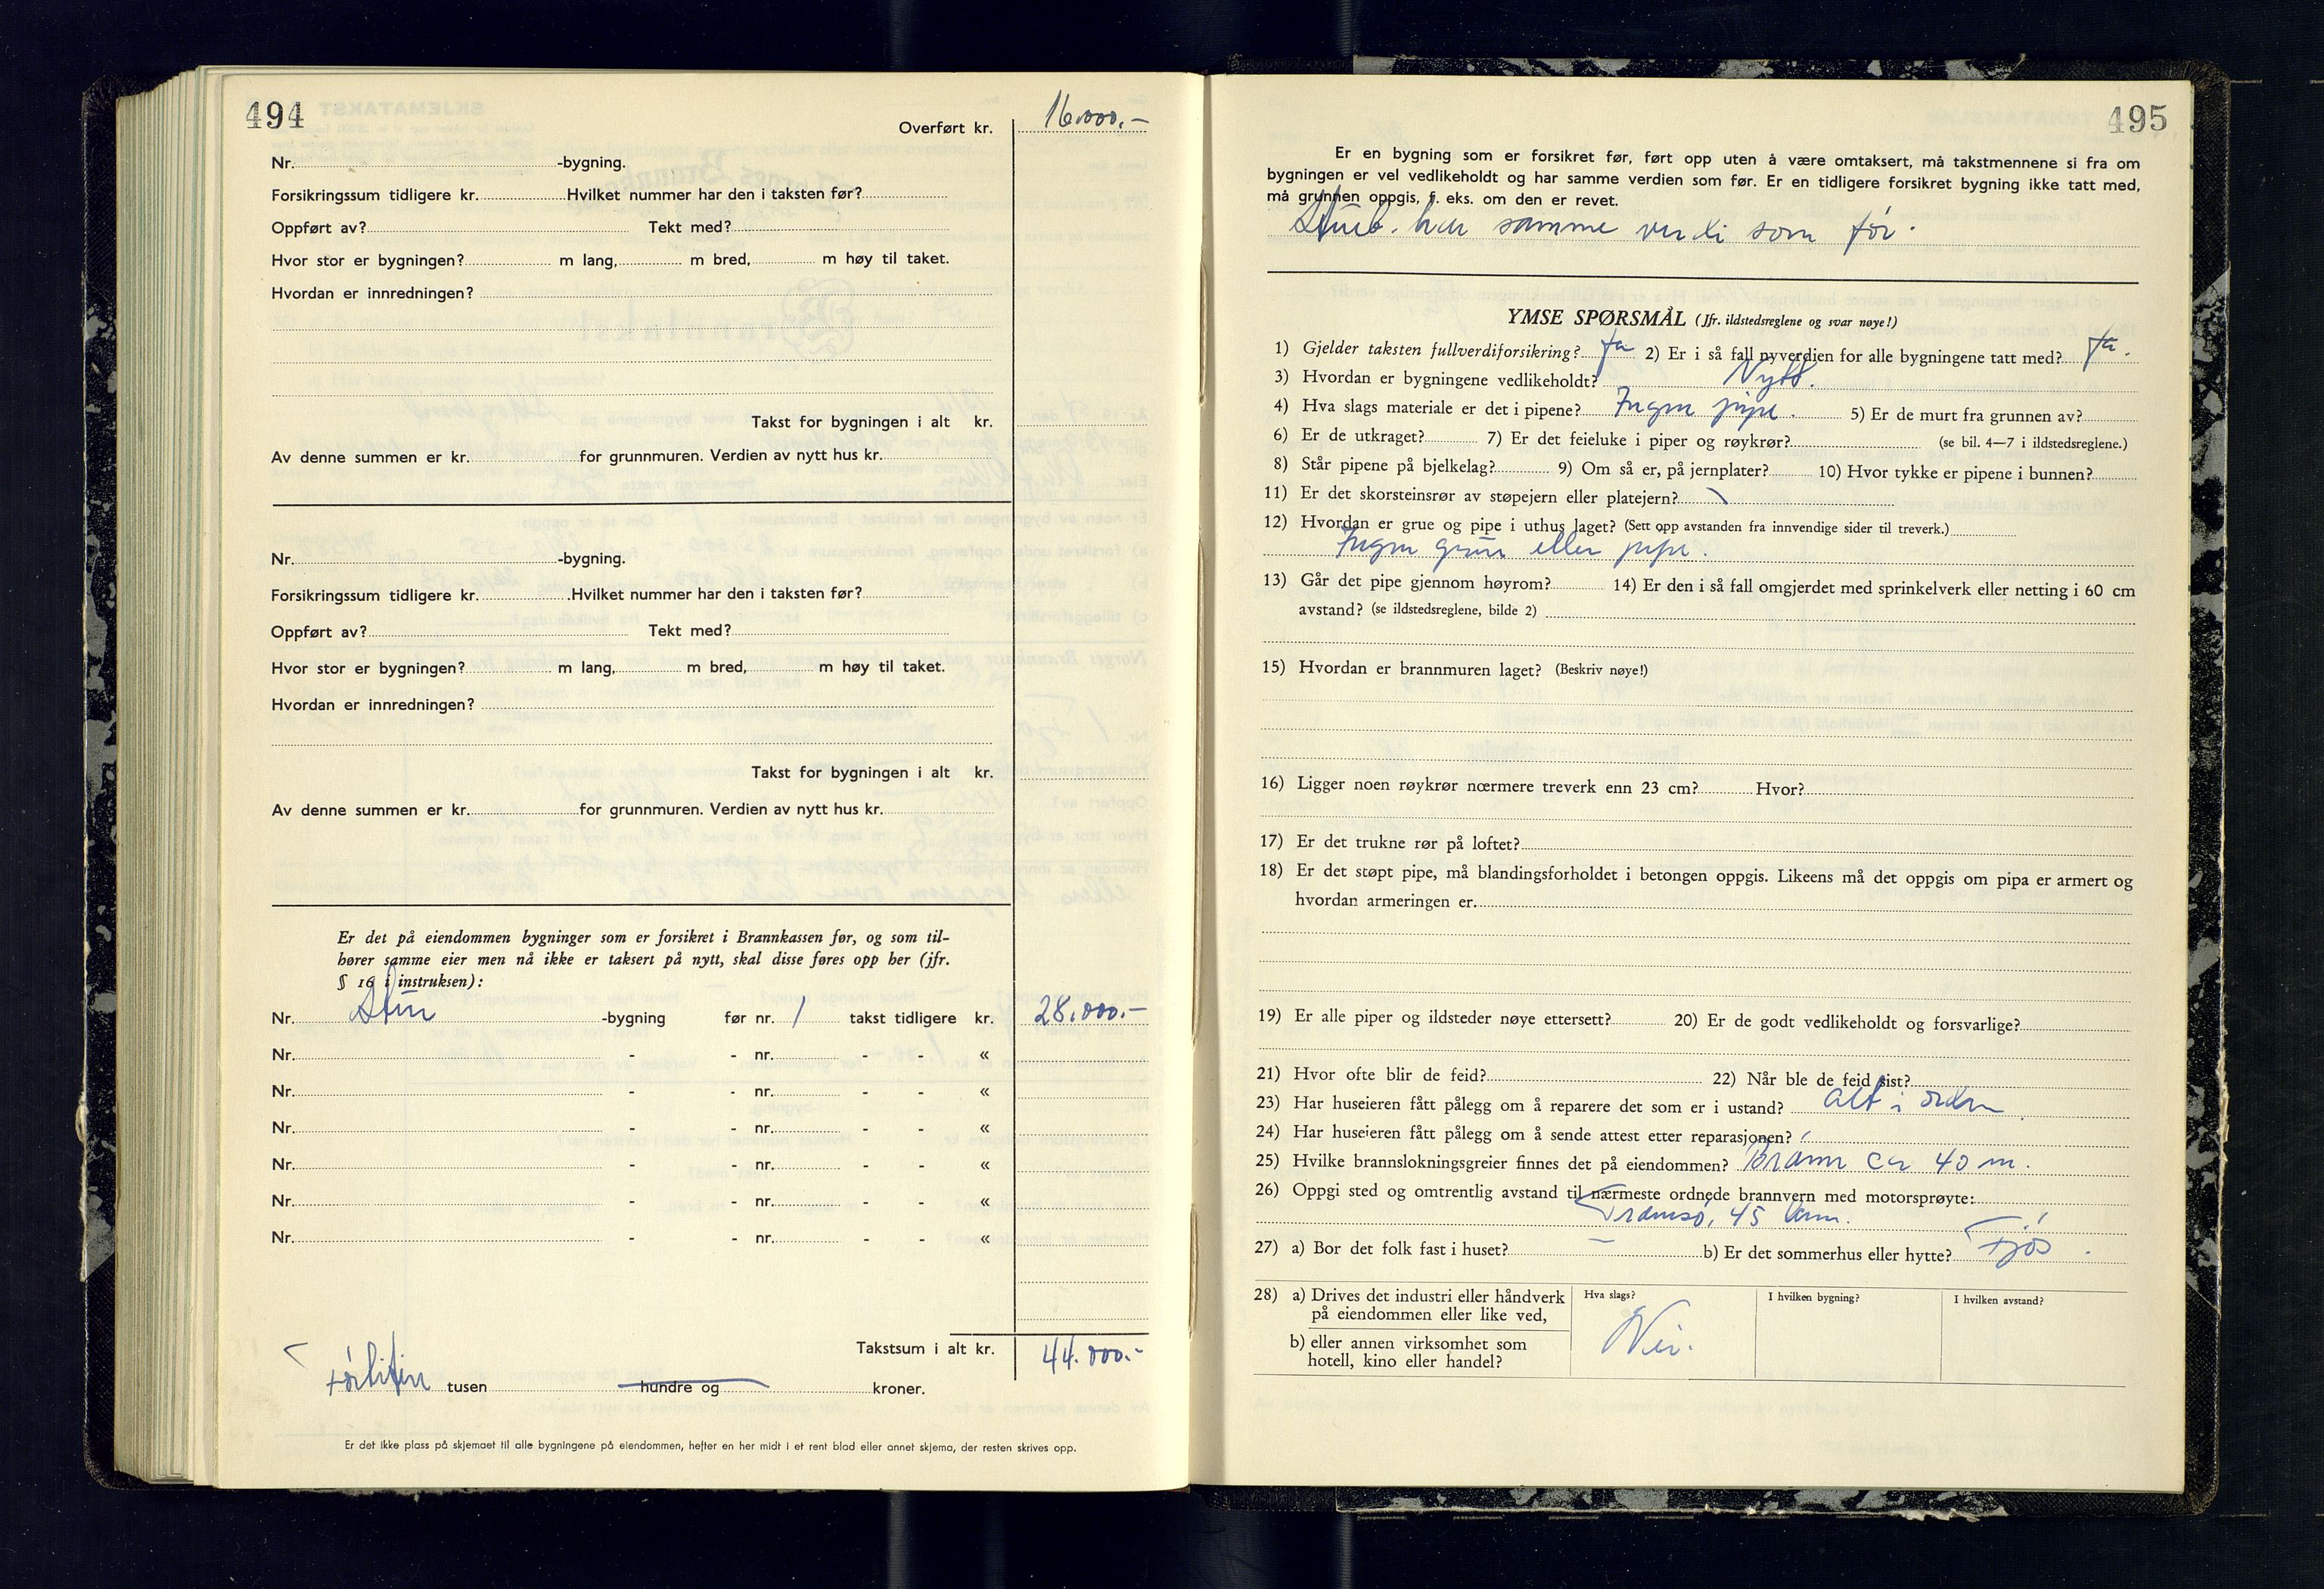 494
Overført kr. 16.000.-
Nr. -bygning.
Forsikringssum tidligere kr. Hvilket nummer har den i taksten før?
Oppført av? Tekt med?
Hvor stor er bygningen? m lang, m bred, m høy til taket.
Hvordan er innredningen?
Takst for bygningen i alt kr.
Av denne summen er kr. for grunnmuren. Verdien av nytt hus kr.
Nr. -bygning.
Forsikringssum tidligere kr. Hvilket nummer har den i taksten før?
Oppført av? Tekt med?
Hvor stor er bygningen? m lang, m bred, m høy til taket.
Hvordan er innredningen?
Takst for bygningen i alt kr.
Av denne summen er kr. for grunnmuren. Verdien av nytt hus kr.
Er det på eiendommen bygninger som er forsikret i Brannkassen før, og som til-
hører samme eier men nå ikke er taksert på nytt, skal disse føres opp her (jfr.
§ 16 i instruksen):
Nr. Stue -bygning før nr. 1 takst tidligere kr. 28.000.-
Nr. - - nr. - - «
Nr. - - nr. - - «
Nr. - - nr. - - «
Nr. - - nr. - - «
Nr. - - nr. - - «
Nr. - - nr. - - «
Takstsum i alt kr. 44.000.-
Førtifire tusen hundre og kroner.
Er det ikke plass på skjemaet til alle bygningene på eiendommen, hefter en her midt i et rent blad eller annet skjema, der resten skrives opp.
495
Er en bygning som er forsikret før, ført opp uten å være omtaksert, må takstmennene si fra om
bygningen er vel vedlikeholdt og har samme verdien som før. Er en tidligere forsikret bygning ikke tatt med,
må grunnen oppgis, f. eks. om den er revet.
Stueb. har samme verdi som før.
YMSE SPØRSMÅL (Jfr. ildstedsreglene og svar nøye!)
1) Gjelder taksten fullverdiforsikring? Ja 2) Er i så fall nyverdien for alle bygningene tatt med? Ja.
3) Hvordan er bygningene vedlikeholdt? Nytt.
4) Hva slags materiale er det i pipene? Ingen pipe. 5) Er de murt fra grunnen av?
6) Er de utkraget? 7) Er det feieluke i piper og røykrør? (se bil. 4—7 i ildstedsreglene.)
8) Står pipene på bjelkelag? 9) Om så er, på jernplater? 10) Hvor tykke er pipene i bunnen?
11) Er det skorsteinsrør av støpejern eller platejern?
12) Hvordan er grue og pipe i uthus laget? (Sett opp avstanden fra innvendige sider til treverk.)
Ingen grue eller pipe.
13) Går det pipe gjennom høyrom? 14) Er den i så fall omgjerdet med sprinkelverk eller netting i 60 cm
avstand? (se ildstedsreglene, bilde 2)
15) Hvordan er brannmuren laget? (Beskriv nøye!)
16) Ligger noen røykrør nærmere treverk enn 23 cm? Hvor?
17) Er det trukne rør på loftet?
18) Er det støpt pipe, må blandingsforholdet i betongen oppgis. Likeens må det oppgis om pipa er armert og
hvordan armeringen er.
19) Er alle piper og ildsteder nøye ettersett? 20) Er de godt vedlikeholdt og forsvarlige?
21) Hvor ofte blir de feid? 22) Når ble de feid sist?
23) Har huseieren fått pålegg om å reparere det som er i ustand? Alt i orden
24) Har huseieren fått pålegg om å sende attest etter reparasjonen?
25) Hvilke brannslokningsgreier finnes det på eiendommen? ca 40 m.
26) Oppgi sted og omtrentlig avstand til nærmeste ordnede brannvern med motorsprøyte:
Tromsø, 45 km.
27) a) Bor det folk fast i huset? — b) Er det sommerhus eller hytte? Fjøs.
28) a) Drives det industri eller håndverk
på eiendommen eller like ved,
b) eller annen virksomhet som
hotell, kino eller handel?
Hva slags?
Nei.
I hvilken bygning?
I hvilken avstand?